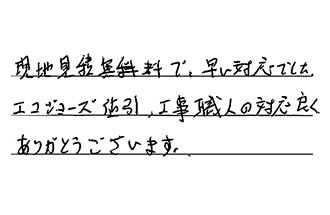 現地見積無料で、早い対応でした。
エコジョーズ値引、工事職人の対応良く
ありがとうございます。